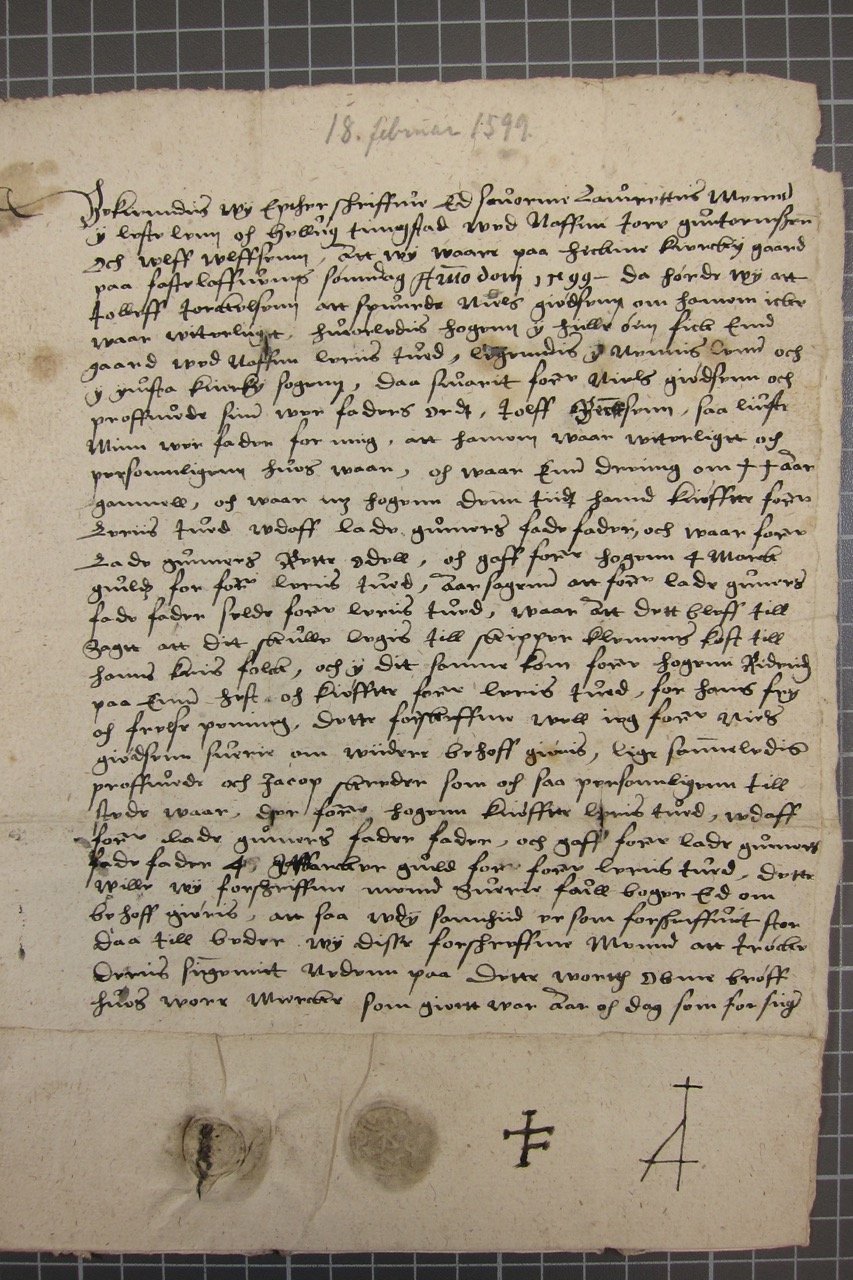 18. februar 1599
Bekiendis wy Epther schriffne Ed suorne Laurettis Mennd
y leste lenn och Hellug tungstad wed Naffnn Tore guttormssen
Och wlff wlffsenn, Att wy waare paa kircky gaard
paa fastelaffuens sonndag Anno domj 1599 – da hørde wy att
Tolleff Torckelsenn att spurde Niels giødsenn om hanom icke
waar witerligt, huorledis hogenn y fick Enn
gaard wed Naffnn leriis tued, liggendis y lenn och
y kircky sogenn, daa suarit forne Niels giødsenn och
proffuede sinn wer faders Ord, Tolff saa liuste
Minn wer fader for mig, att hanom waar witerligt och
personnligenn huos waar, och waar Enn dreinng om aar
gammell, och waar hogenn denn tiidt hannd kiøffte forne
Leriis tued wdaff lade gunners fade fader, och waar forne
Lade gunners Rette Odell, och gaff forne hogenn 4 Marck
guld for forne leriis tued, Aarsagenn att forne lade gunners
fade fader selde forne leriis tued, waar Att dett bleff till
Sagtt att dit skulle legis till skipper klemens kost till
hanns folck, och y dit samme kom forne hogenn Ridendis
paa Enn hest och kiøffte forne leriis tued, for hans fry
och frelse penning, dette forskreffne well ieg forne Niels
giødsenn suerie om wiidere behoff giøris, lige sammeledis
proffuede och Jacop skreder som och saa personnligenn till
stede waar, der forne hogenn kiøffte leriis tued, wdaff
forne lade gunners fader fader, och gaff forne lade gunners
fade fader 4 Marcker guld for forne leriis tued, dette
wille wy forskriffne mennd suerie full boger Ed om
behoff giøris, att saa wdj sannhiid er som forskriffuit stor
daa till beder wy disse forschreffne Mennd att trøcke
deris Signnet Nedenn paa dette wortt Obne breff
huos wore Mercker som giortt war Aar och dag som for siger